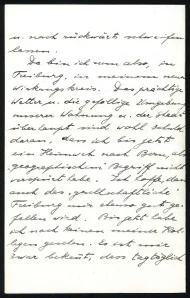 u. noch rückwärts schweifen
lassen.
Da bin ich nun also, in
Freiburg, in meinem neuen
Wirkungskreis. Das prächtige
Wetter u. die gefällige Umgebung
unserer Wohnung u. der Stadt
überhaupt sind wohl schuld
daran, dass ich bis jetzt
ein Heimweh nach Bern, als
geographischen Begriff nicht
verspürt habe. Ich hoffe, dass
auch das gesellschaftliche
Freiburg mir etwas gut ge-
fallen wird. Bis jetzt habe
ich noch keinen meiner Kol-
legen gesehen. Es ist mir
zwar bekannt, dass tagtäglich